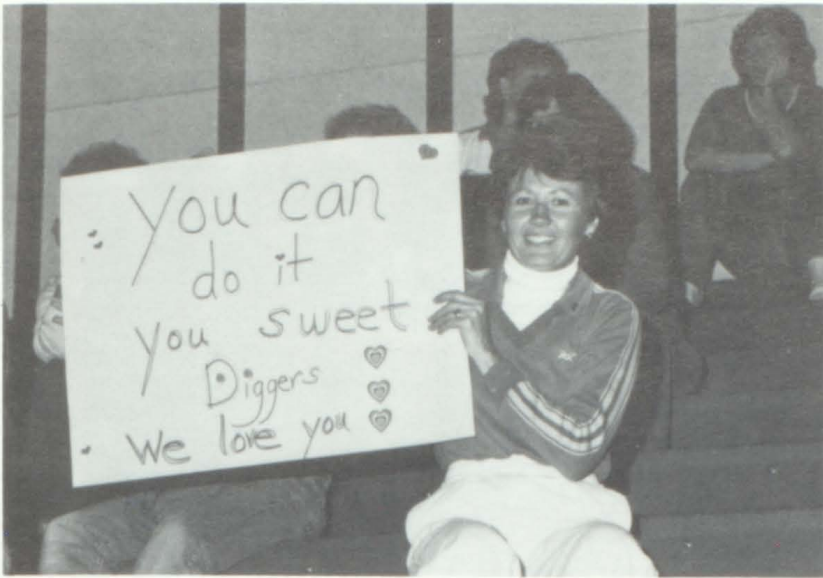 You can
do it
you sweet
Diggers
We love you